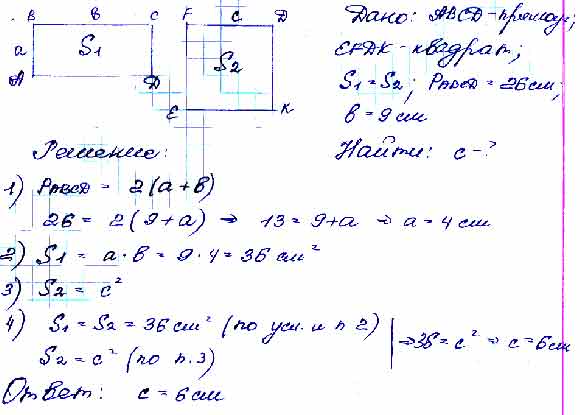 B в C F c D
a S₁ S₂
A D E K
Дано: ABCD - прямоуг;
EFDK - квадрат;
S₁ = S₂; PABCD = 26 см;
в = 9 см
Решение:
Найти: c - ?
1) PABCD = 2(a + в)
26 = 2(9 + a) ⇒ 13 = 9 + a ⇒ a = 4 см
2) S₁ = a · в = 9 · 4 = 36 см²
3) S₂ = c²
4) S₁ = S₂ = 36 см² (по усл. и п 2)
S₂ = c² (по п. 3)
⇒ 36 = c² ⇒ c = 6 см
Ответ: c = 6 см